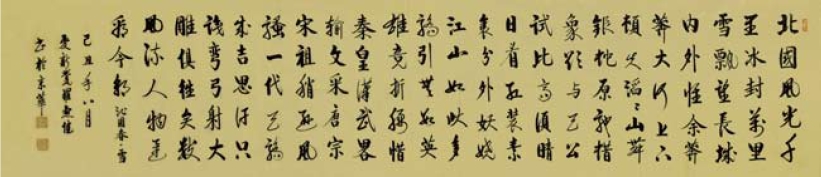 北國風光千
里冰封萬里
雪飄望長城
內外惟余莽
莽大河上下
頓失滔滔山舞
銀蛇原馳蠟
象欲與天公
試比高須晴
日看紅裝素
裹分外妖嬈
江山如此多
嬌引無數英
雄競折腰惜
秦皇漢武略
輸文采唐宗
宋祖稍遜風
騷一代天驕
成吉思汗只
識彎弓射大
雕俱往矣數
風流人物還
看今朝 沁園春·雪
己丑年八月
愛新覺羅
書於京華